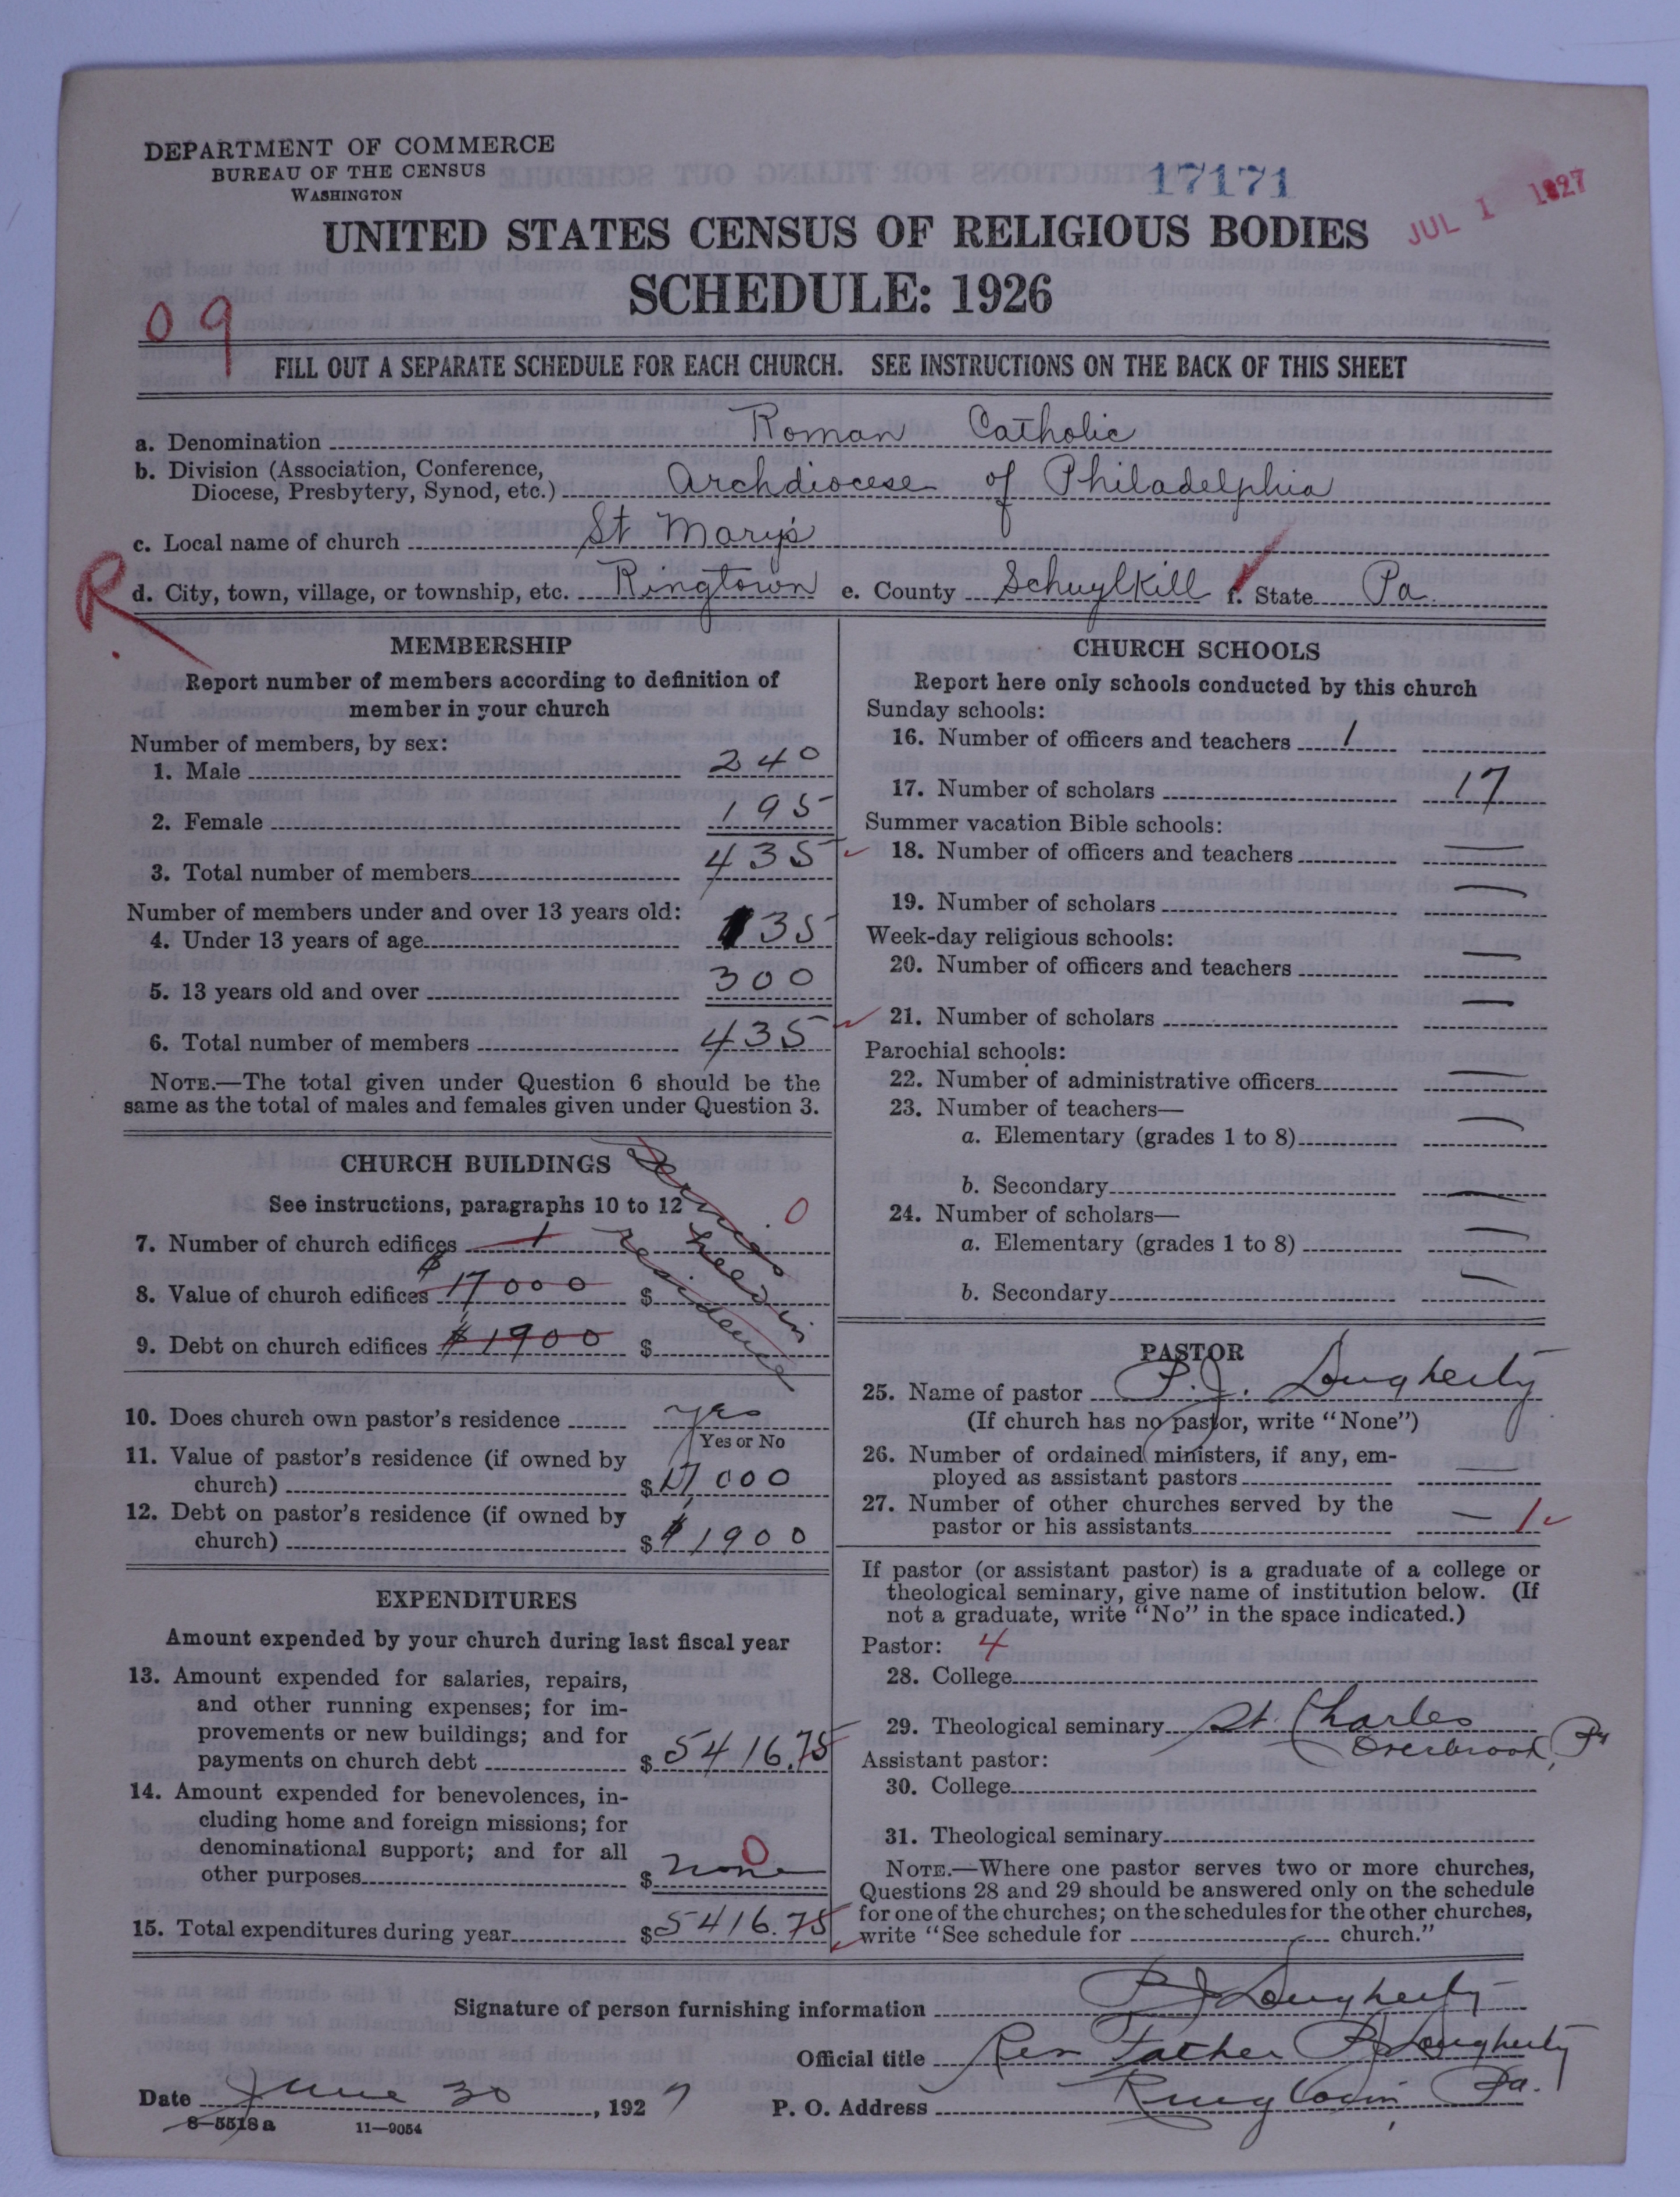 DEPARTMENT OF COMMERCE
BUREAU OF THE CENSUS
WASHINGTON
17171
JUL 1 1927
UNITED STATES CENSUS OF RELIGIOUS BODIES
SCHEDULE: 1926
09
FILL OUT A SEPARATE SCHEDULE FOR EACH CHURCH. SEE INSTRUCTIONS ON THE BACK OF THIS SHEET
a. Denomination Roman Catholic
b. Division (Association, Conference,
Diocese, Presbytery, Synod, etc.) Archdiocese of Philadelphia
c. Local name of church St Mary's
R
d. City, town, village, or township, etc. Ringtown e. County Schuylkill f. State Pa.
MEMBERSHIP
Report number of members according to definition of
member in your church
Number of members, by sex:
1. Male 240
2. Female 195
3. Total number of members 435
Number of members under and over 13 years old:
4. Under 13 years of age 135
5. 13 years old and over 300
6. Total number of members 435
NOTE.—The total given under Question 6 should be the
same as the total of males and females given under Question 3.
CHURCH BUILDINGS
See instructions, paragraphs 10 to 12
Services held in residence
0
7. Number of church edifices 1
8. Value of church edifices $17000 $
9. Debt on church edifices $1900 $
10. Does church own pastor's residence yes
Yes or No
11. Value of pastor's residence (if owned by
church) $17000
12. Debt on pastor's residence (if owned by
church) $1900
EXPENDITURES
Amount expended by your church during last fiscal year
13. Amount expended for salaries, repairs,
and other running expenses; for im-
provements or new buildings; and for
payments on church debt $5416.75
14. Amount expended for benevolences, in-
cluding home and foreign missions; for
denominational support; and for all
other purposes $ none 0
15. Total expenditures during year $5416.75
CHURCH SCHOOLS
Report here only schools conducted by this church
Sunday schools:
16. Number of officers and teachers 1
17. Number of scholars 17
Summer vacation Bible schools:
18. Number of officers and teachers —
19. Number of scholars —
Week-day religious schools:
20. Number of officers and teachers —
21. Number of scholars —
Parochial schools:
22. Number of administrative officers —
23. Number of teachers—
a. Elementary (grades 1 to 8) —
b. Secondary —
24. Number of scholars—
a. Elementary (grades 1 to 8) —
b. Secondary —
PASTOR
25. Name of pastor P. J. Dougherty
(If church has no pastor, write "None")
26. Number of ordained ministers, if any, em-
ployed as assistant pastors —
27. Number of other churches served by the
pastor or his assistants — 1
If pastor (or assistant pastor) is a graduate of a college or
theological seminary, give name of institution below. (If
not a graduate, write "No" in the space indicated.)
Pastor: 4
28. College
29. Theological seminary St. Charles
Overbrook, Pa
Assistant pastor:
30. College
31. Theological seminary
NOTE.—Where one pastor serves two or more churches,
Questions 28 and 29 should be answered only on the schedule
for one of the churches; on the schedules for the other churches,
write "See schedule for church."
Signature of person furnishing information P J Dougherty
Official title Rev Father P J Dougherty
Date June 30, 1927 P. O. Address Ringtown, Pa.
8—5518a 11—9054